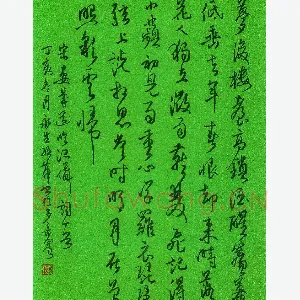 夢後樓臺高鎖酒醒簾幕
低垂去年春恨却來時落
花人獨立微雨燕雙飛記得
小蘋初見兩重心字羅衣琵琶
弦上說相思當時明月在曾
照彩雲歸
宋晏幾道臨江仙詞一首
丁亥冬月